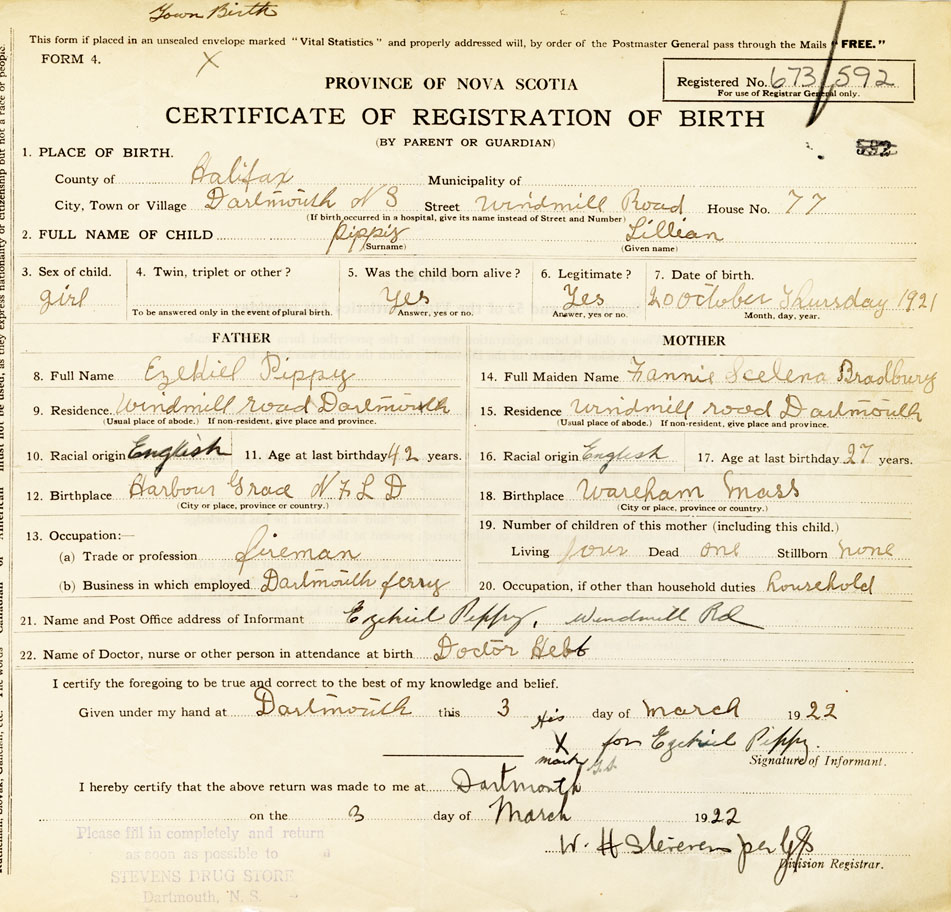 Town Birth
This form if placed in an unsealed envelope marked "Vital Statistics" and properly addressed will, by order of the Postmaster General pass through the Mails "FREE."
FORM 4. X
PROVINCE OF NOVA SCOTIA
Registered No. 673 592
For use of Registrar General only.
CERTIFICATE OF REGISTRATION OF BIRTH
(BY PARENT OR GUARDIAN)
1. PLACE OF BIRTH.
County of Halifax Municipality of
City, Town or Village Dartmouth N S Street Windmill Road House No. 77
(If birth occurred in a hospital, give its name instead of Street and Number)
2. FULL NAME OF CHILD Pippy Lillian
(Surname) (Given name)
3. Sex of child. 4. Twin, triplet or other? 5. Was the child born alive? 6. Legitimate? 7. Date of birth.
girl Yes Yes 20 October Thursday 1921
To be answered only in the event of plural birth. Answer, yes or no. Answer, yes or no. Month, day, year.
FATHER MOTHER
8. Full Name Ezekiel Pippy 14. Full Maiden Name Fannie Seelena Bradbury
9. Residence. Windmill road Dartmouth 15. Residence windmill road Dartmouth
(Usual place of abode.) If non-resident, give place and province. (Usual place of abode.) If non-resident, give place and province.
10. Racial origin English 11. Age at last birthday 42 years. 16. Racial origin English 17. Age at last birthday 27 years.
12. Birthplace Harbour Grace N F L D 18. Birthplace Wareham Mass
(City or place, province or country.) (City or place, province or country.)
13. Occupation:— 19. Number of children of this mother (including this child.)
(a) Trade or profession fireman Living four Dead one Stillborn none
(b) Business in which employed Dartmouth ferry 20. Occupation, if other than household duties household
21. Name and Post Office address of Informant Ezekiel Pippy, Windmill Rd
22. Name of Doctor, nurse or other person in attendance at birth Doctor Hebb
I certify the foregoing to be true and correct to the best of my knowledge and belief.
Given under my hand at Dartmouth this 3 day of March 1922
His
X for Ezekiel Pippy.
mark Signature of Informant.
I hereby certify that the above return was made to me at Dartmouth
on the 3 day of March 1922
W. H Stevens per
Division Registrar.
Please fill in completely and return
as soon as possible to
STEVENS DRUG STORE
Dartmouth, N. S.